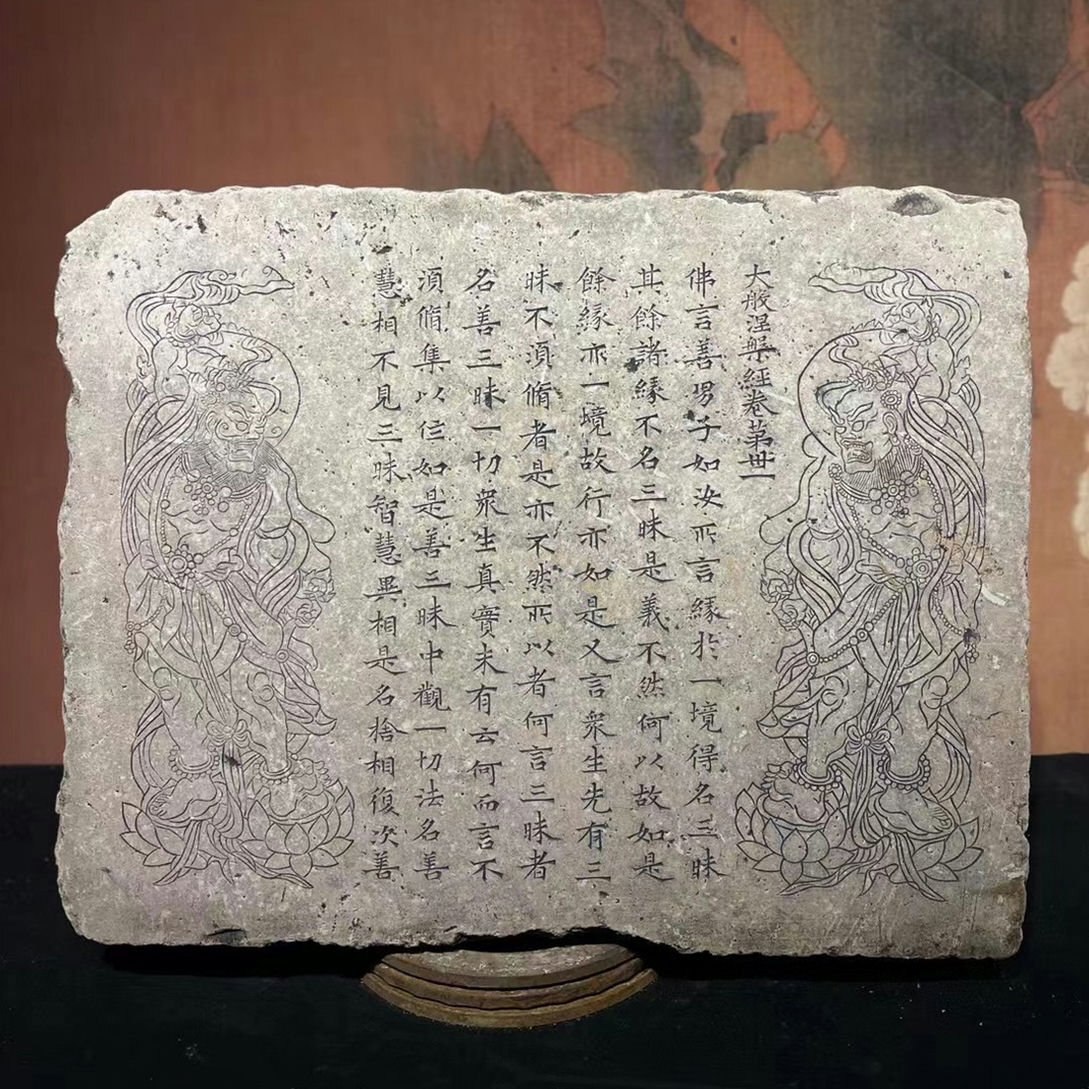 大般涅槃經卷第卅一
佛言善男子如汝所言緣於一境得名三昧
其餘諸緣不名三昧是義不然何以故如是
餘緣亦一境故行亦如是又言衆生先有三
昧不須脩者是亦不然所以者何言三昧者
名善三昧一切衆生真實未有云何而言不
須脩集以住如是善三昧中觀一切法名善
慧相不見三昧智慧異相是名捨相復次善